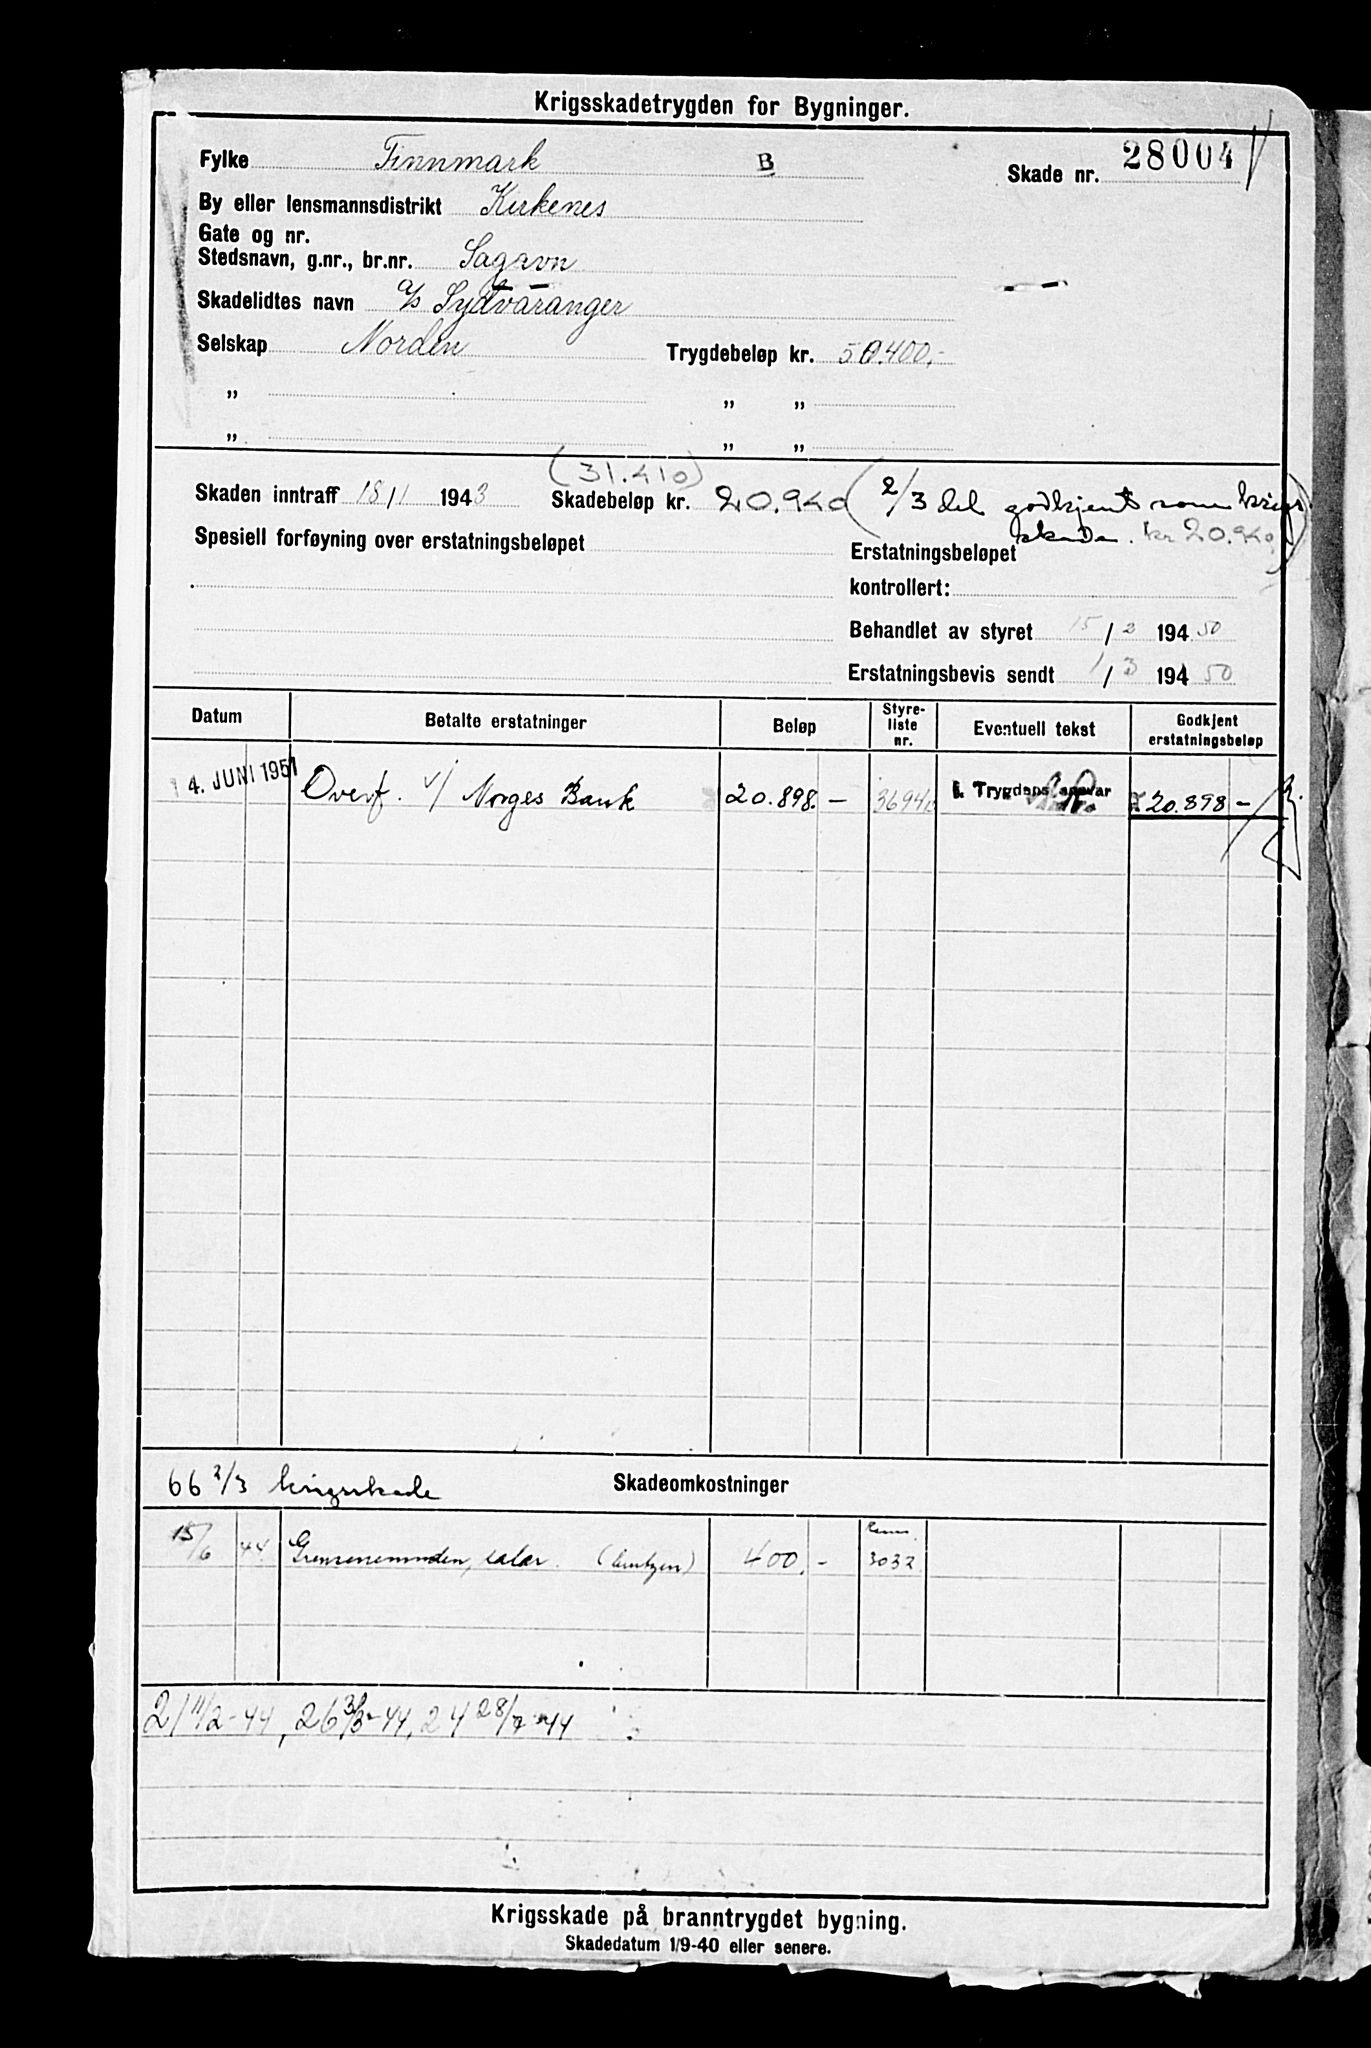 Krigsskadetrygden for Bygninger.
Fylke Finnmark B Skade nr. 28004
By eller lensmannsdistrikt Kirkenes
Gate og nr.
Stedsnavn, g.nr., br.nr. Sagavn
Skadelidtes navn a/s Sydvaranger
Selskap Norden Trygdebeløp kr. 50.400,-
" " "
" " "
(31.410)
Skaden inntraff 18/1 1943 Skadebeløp kr. 20.940 (2/3 del godkjent som krigs
skade. kr 20.940)
Spesiell forføyning over erstatningsbeløpet Erstatningsbeløpet
kontrollert:
Behandlet av styret 15/2 194 50
Erstatningsbevis sendt 1/3 194 50
Datum Betalte erstatninger Beløp Styre-liste nr. Eventuell tekst Godkjent erstatningsbeløp
14. JUNI 1951 Overf. v/ Norges Bank 20.898.- 3694 f. Trygdens ansvar 20.898-
66 2/3 krigsskade Skadeomkostninger
15/6 44 400,- 3032
21 11/2-44, 26 3/3-44, 24 28/7-44
Krigsskade på branntrygdet bygning.
Skadedatum 1/9-40 eller senere.